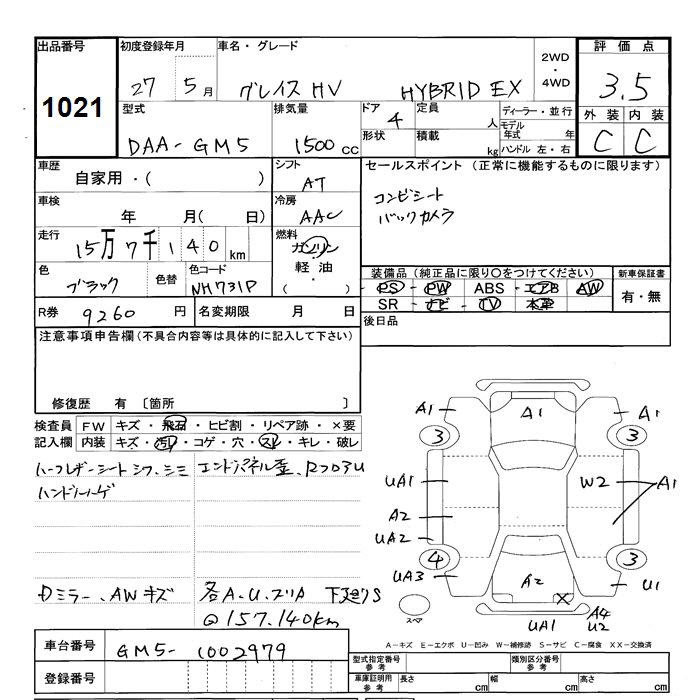 出品番号 初度登録年月 車名・グレード 評価点
1021 27 5月 グレイス HV HYBRID EX 2WD・4WD 3.5
型式 排気量 ドア 定員 ディーラー・並行 外装 内装
DAA-GM5 1500cc 4 人 モデル年式 年 C C
形状 積載 kg ハンドル 左・右
車歴 シフト セールスポイント (正常に機能するものに限ります)
自家用・( ) AT コンビシート
車検 冷房 バックカメラ
年 月( 日) AAC
走行 燃料
15万7千140km ガソリン
色 色替 色コード 軽油 装備品(純正品に限り○をつけてください) 新車保証書
ブラック NH731P ・( ) PS・PW ABS・エアB AW 有・無
SR・ナビ・TV 本革
R券 9260円 名変期限 月 日 後日品
注意事項申告欄(不具合内容等は具体的に記入して下さい)
修復歴 有 〔箇所 〕
検査員 FW キズ・飛石・ヒビ割・リペア跡・×要
記入欄 内装 キズ・汚れ・コゲ・穴・スレ・キレ・破レ
ハーフレザーシート シワ、シミ エンドパネル歪、
ハンドルハゲ
ドミラー、AWキズ 各A.U. 下廻りS
@157.140km
A1 A1 A1
3 3
UA1 W2 A1
A2
UA2
4 3
UA3 A2 X U1
スペア UA1 A4
U2
A-キズ E-エクボ U-凹み W-補修跡 S-サビ C-腐食 XX-交換済
車台番号 GM5-1002979
登録番号
型式指定番号 参考 類別区分番号 参考
車庫証明用 参考 長さ cm 幅 cm 高さ cm